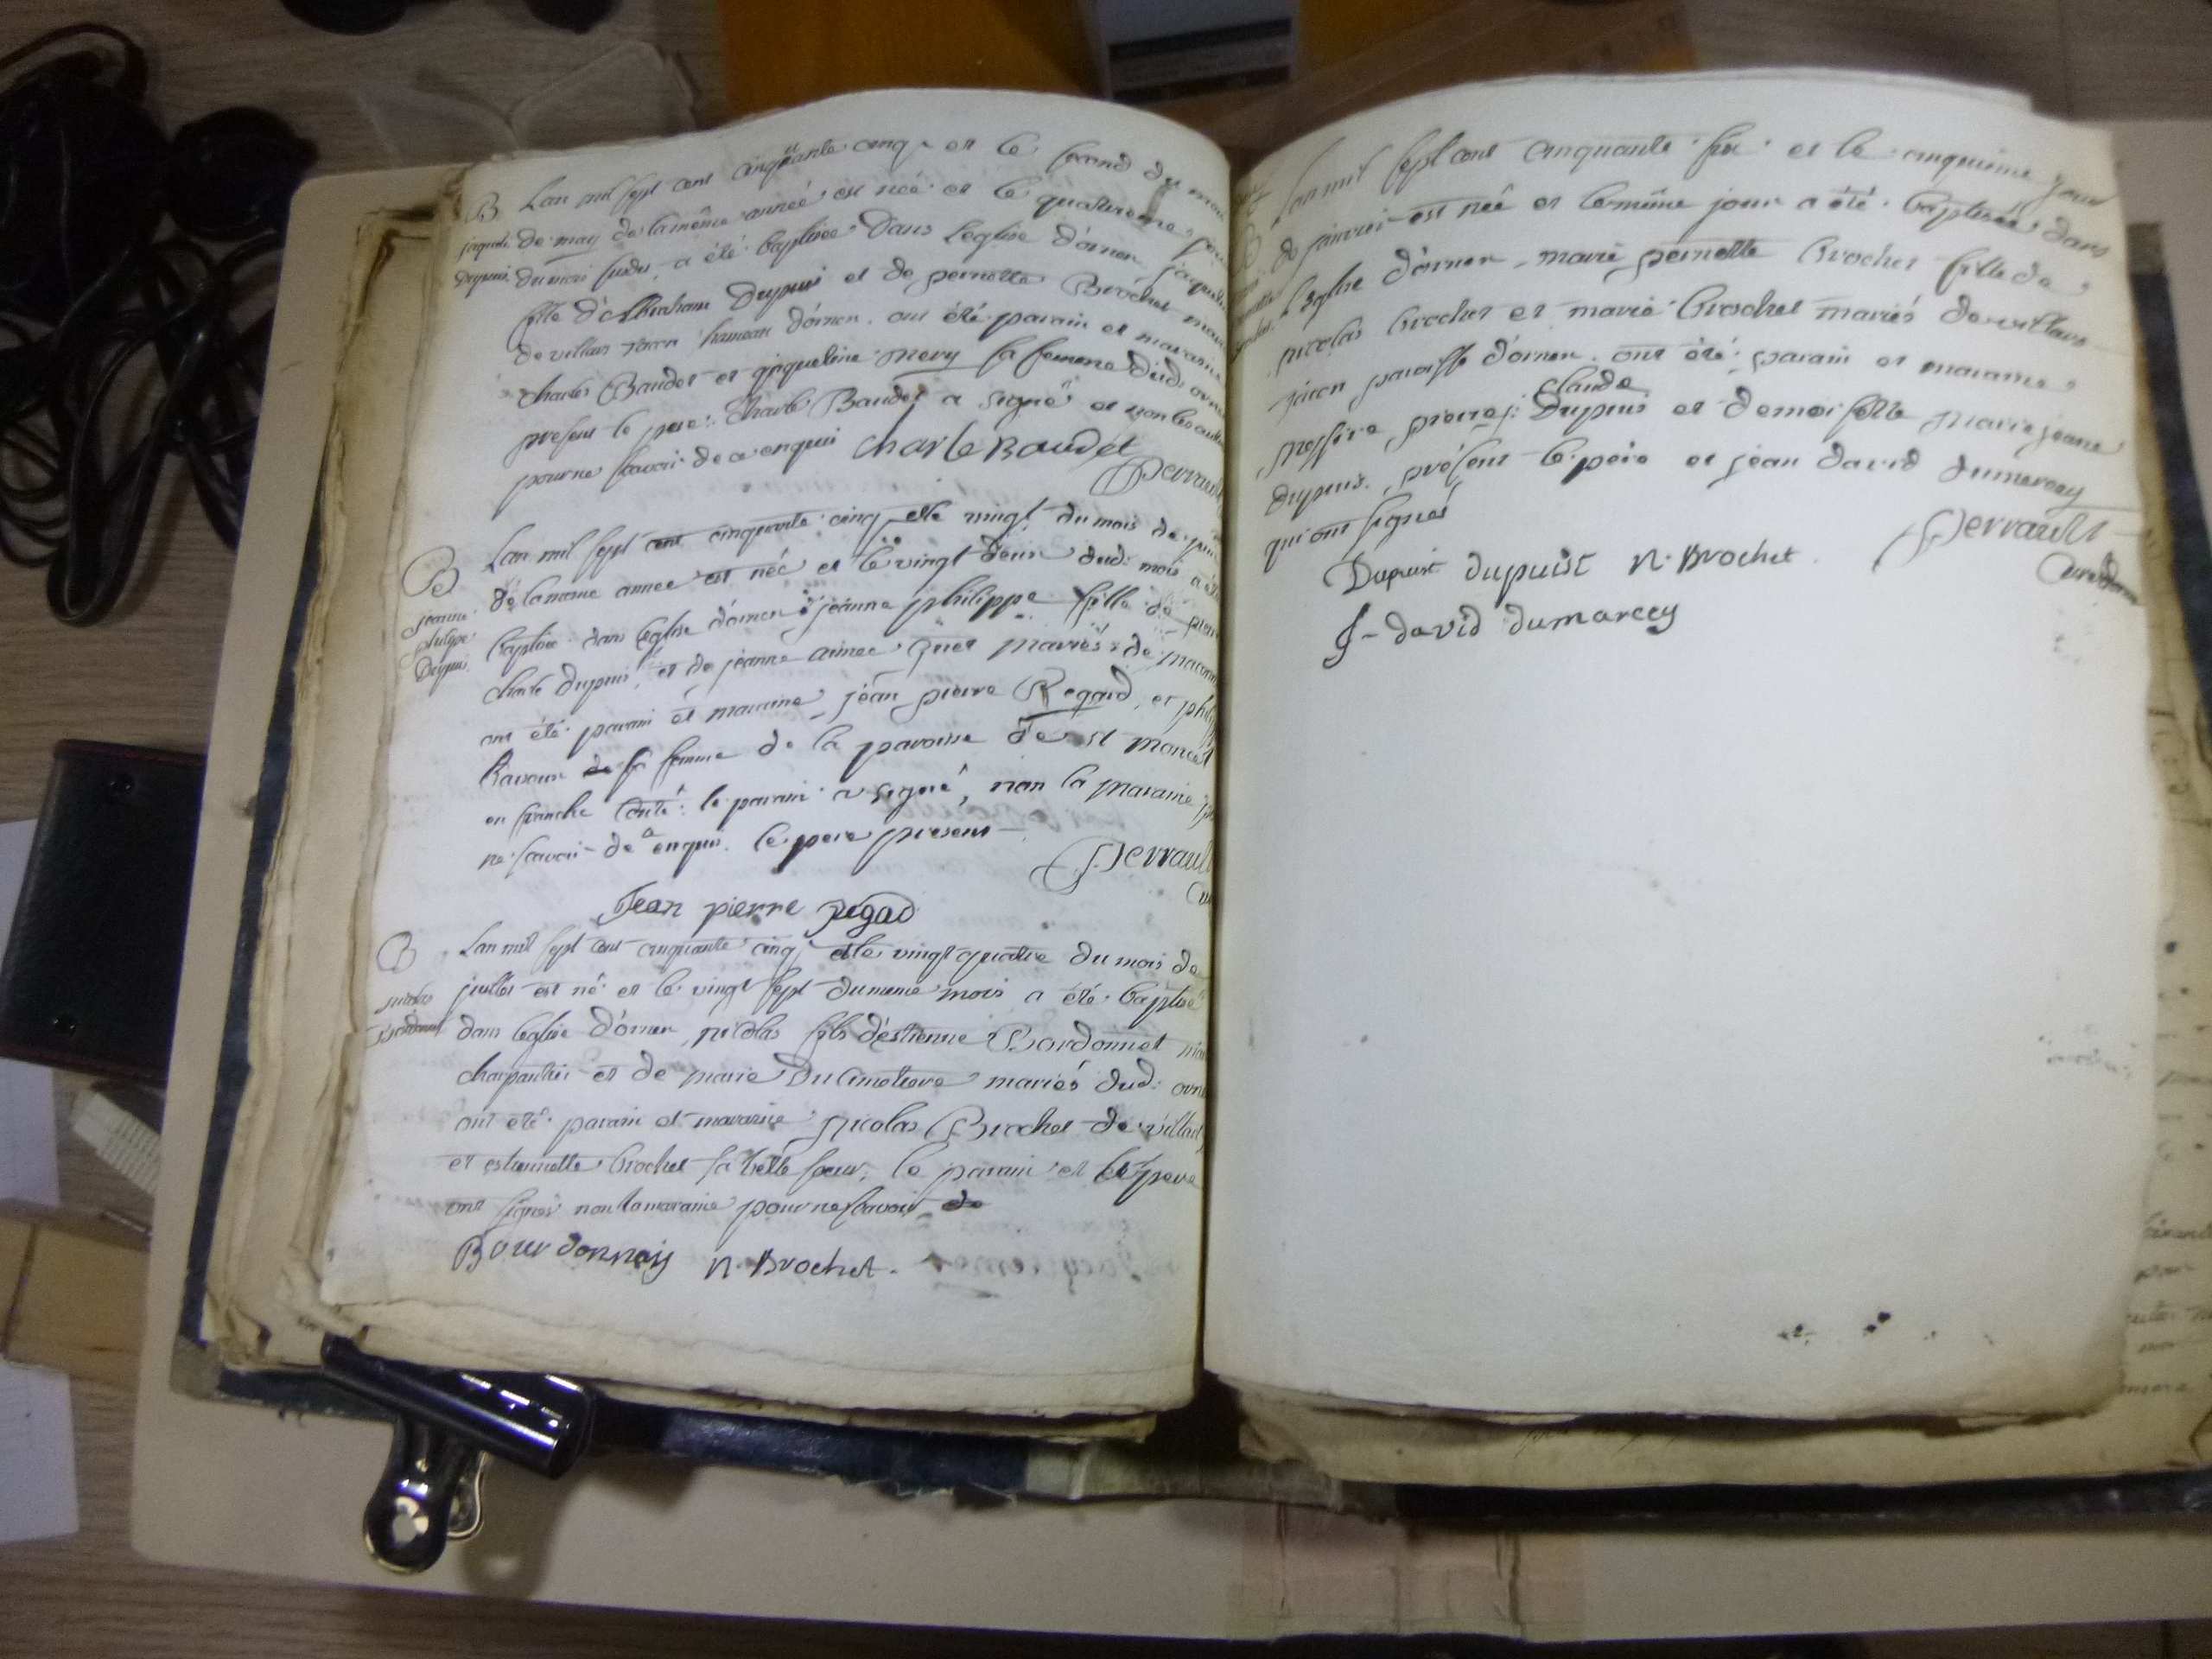 B Lan mil sept cent cinquante cinq et le second du mois
jaqueli. de may de la même année est née et le quatrieme jou
Dupuis. du mois susdit a été baptisée dans leglise d'ornex jaqueli
fille d'Abraham Dupuis et de pernette Brochet mariés
de villars hameau d'ornex. ont été parain et maraine
Charles Baudet et jaqueline mery sa femme dud. ornex
present le pere. Charle Baudet a signé et non les autres
pour ne scavoir de ce enquis Charle Baudet
Perrault
B Lan mil sept cent cinquante cinq et le vingt du mois de juin
de la meme annee est née et le vingt deux dud. mois a été
jeanne
philipe
Dupuis
baptisée dans leglise d'ornex jeanne philippe fille de pierre
charle dupuis et de jeanne aimee mariés de
ont été parain et maraine jean pierre Regard, et phi
sa femme de la paroisse de st
en franche Conté: le parain a signé, non la maraine p
ne scavoir de ce enquis. le pere present
Perrault
Cu
Jean pierre Regad
B Lan mil sept cent cinquante cinq et le vingt quatre du mois de
juillet est né et le vingt sept du meme mois a été baptisé
nicolas
dans leglise d'ornex nicolas fils d'estienne Bordonnet
charpentier et de marie Ducimetiere mariés dud. ornex
ont été parain et maraine Nicolas Brochet de villars
et estiennette brochet sa belle soeur; le parain et le pere
ont signés non la maraine pour ne scavoir de
Bourdonnay N. Brochet.
Lan mil sept cent cinquante six et le cinquieme jour
de janvier est née et le même jour a été baptisée dans
l'eglise d'ornex marie pernette brochet fille de
nicolas brochet et marie brochet mariés de villars
paroisse d'ornex. ont été parain et maraine
claude
Dupuis et demoiselle marie jeane
dupuis. présent le père et jean david dumarcey
qui ont signés
Perrault
Dupuist dupuist N. Brochet.
Curé d'ornex
J-david dumarcey